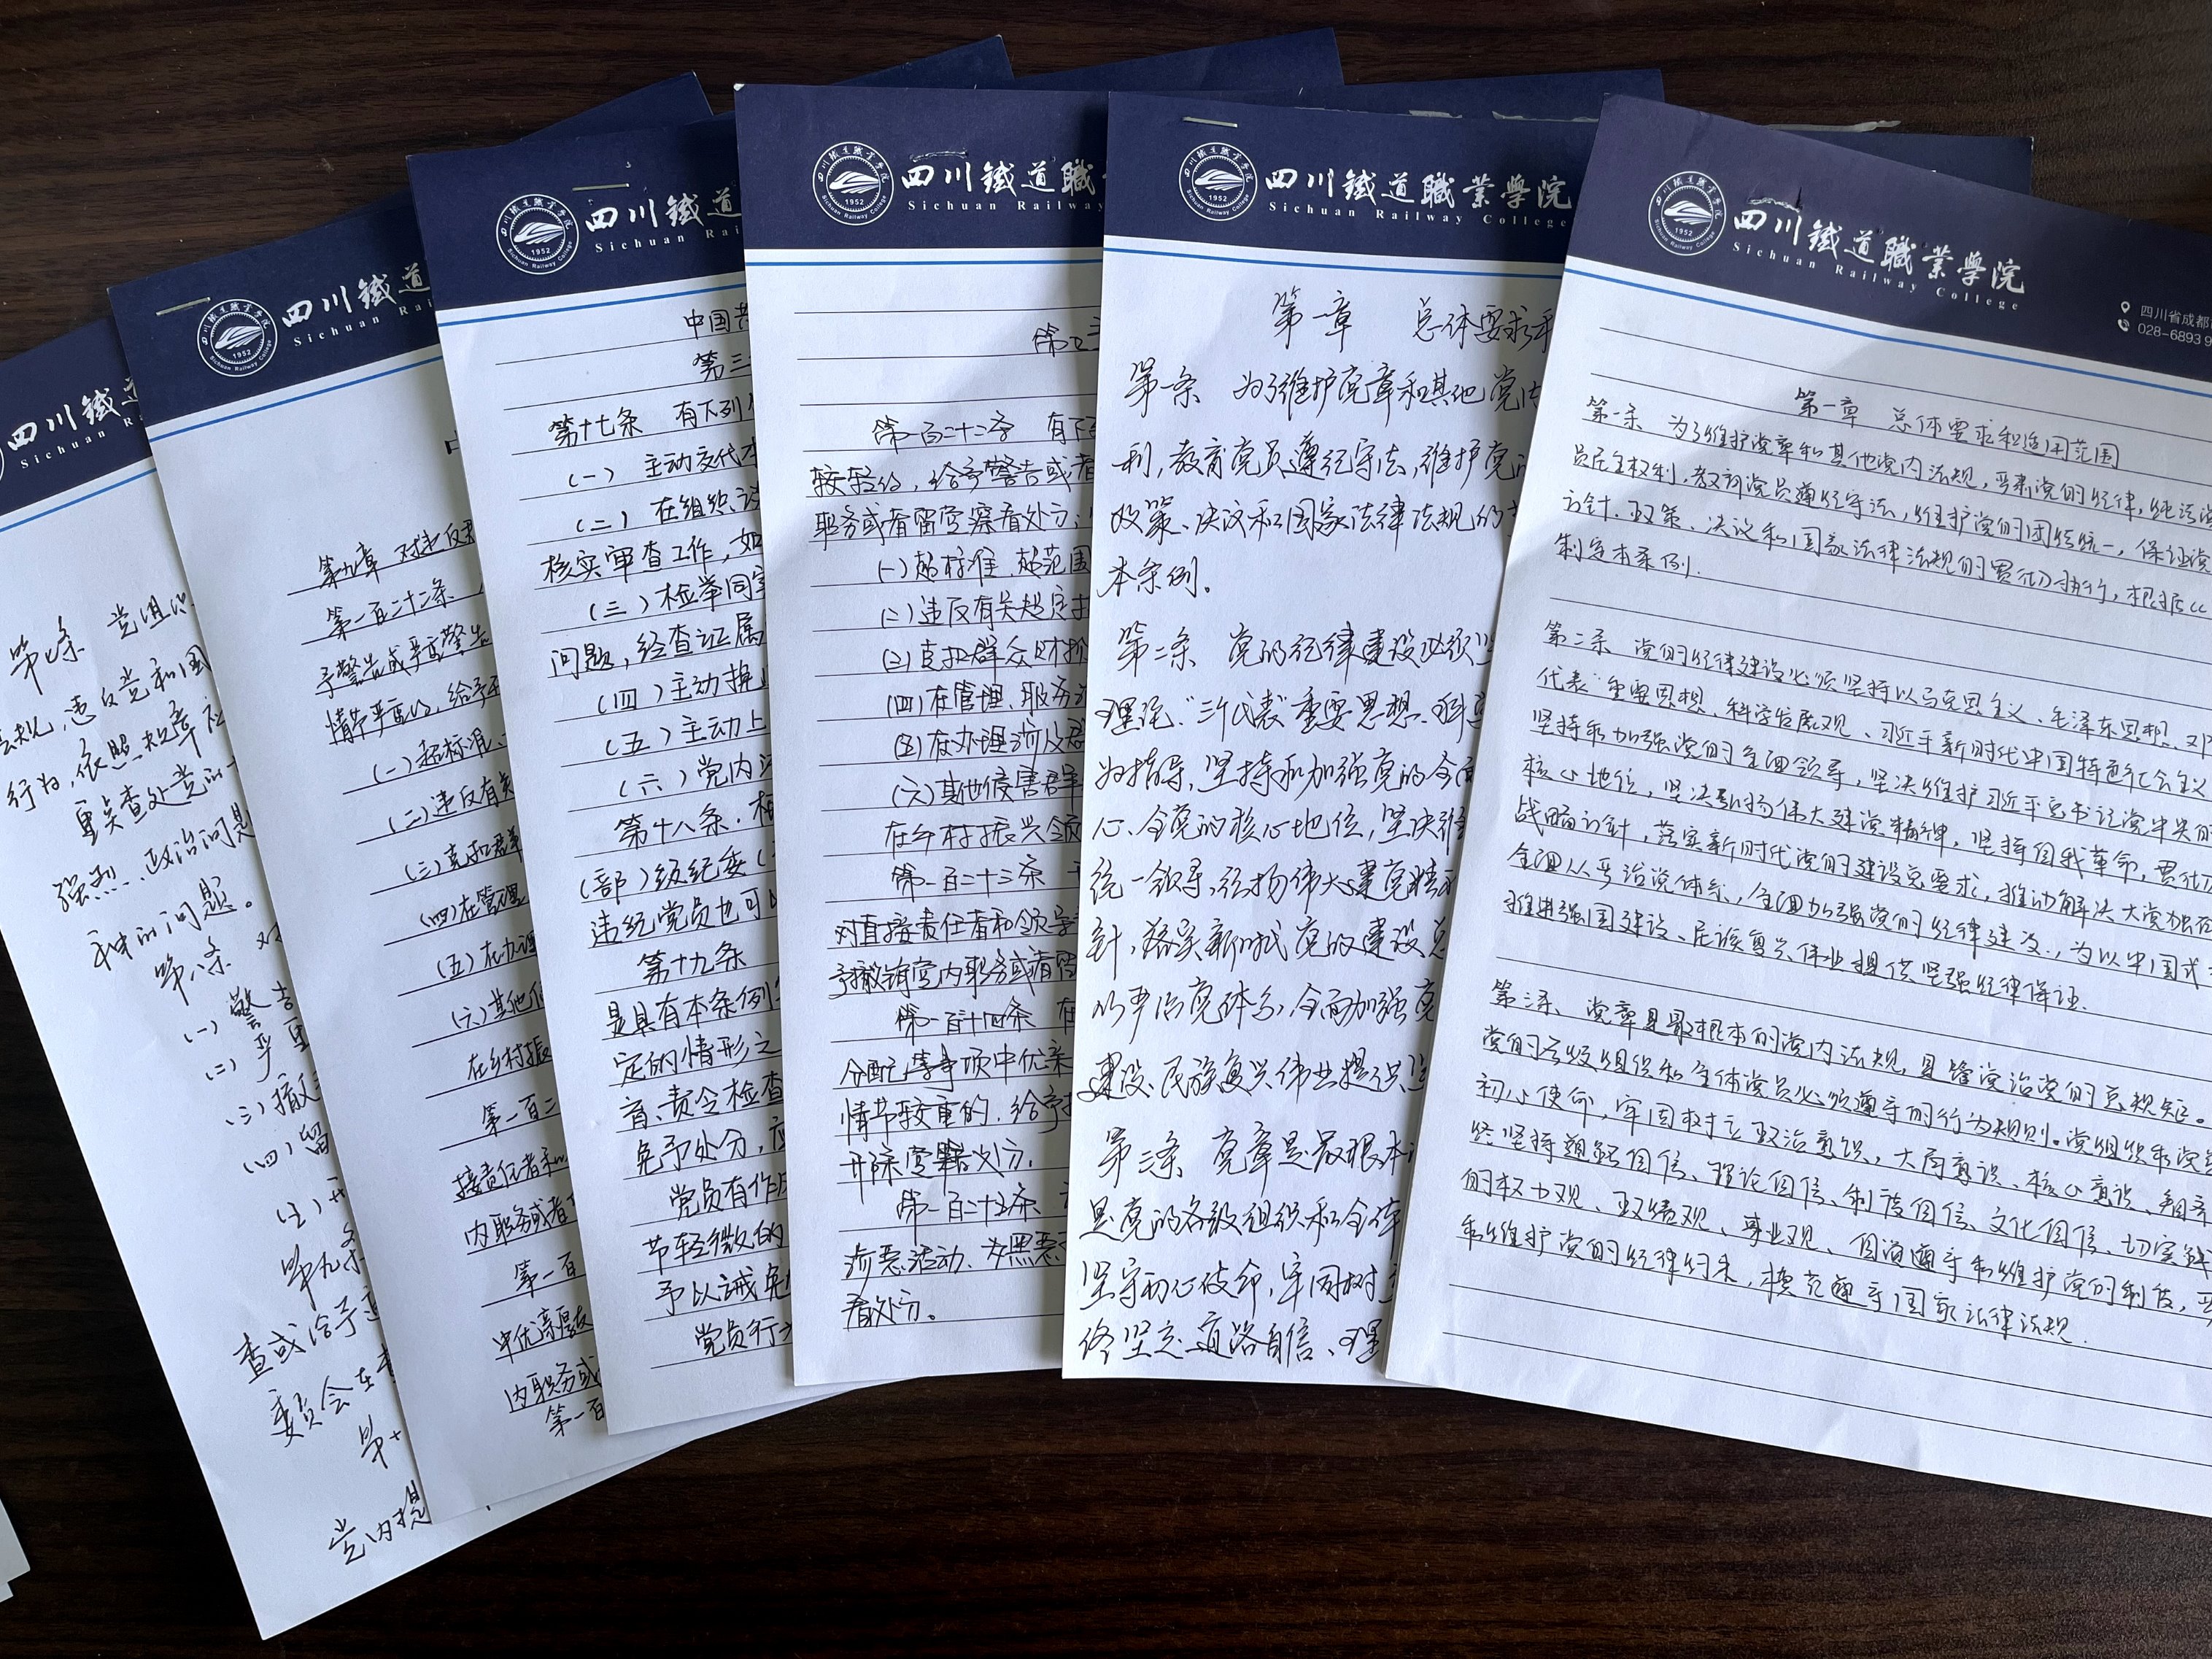 四川鐵道
Sichuan R
第七条 党组
法规,违反党和国
行为,依照规章
重点查处党的十
强烈、政治问题
织的问题。
第八条 对
(一)警告
(二)严重
(三)撤
(四)留
(五)开
第九条
查或给予
委员会在
第十
党内提
四川鐵道
Sichuan Rai
1952
Sichuan Railway College
第九章 对违反群
第一百二十二条
予警告或严重警告
情节严重的,给予开
(一)超标准、
(二)违反有关
(三)克扣群
(四)在管理
(五)在办理
(六)其他
在乡村振
第一百二
接责任者和
内职务或者
第一百
中优亲厚友
内职务或
第一百
四川鐵道
Sichuan Rai
1952
Sichuan Railway College
中国共
第三
第十七条 有下列
(一)主动交代本
(二)在组织
核实审查工作,如
(三)检举同案
问题,经查证属
(四)主动挽
(五)主动上
(六)党内
第十八条.
(部)级纪委(
违纪党员也可以
第十九条
是具有本条例
定的情形之
育、责令检查
免予处分,应
党员有作
节轻微的
予以诫免
党员行为
四川鐵道職
Sichuan Railway
1952
Sichuan Railway College
第一百二十二条 有下
较轻的,给予警告或者
职务或者留党察看处分;
(一)超标准、超范围
(二)违反有关规定
(三)克扣群众财物
(四)在管理、服务
(五)在办理涉及群
(六)其他侵害群
在乡村振兴领
第一百二十三条
对直接责任者和领导
予撤销党内职务或者留
第一百二十四条 在
分配等事项中优亲
情节较重的,给予
开除党籍处分.
第一百二十五条
涉恶活动、为黑恶
看处分。
四川鐵道職業學院
Sichuan Railway College
1952
Sichuan Railway College
第一章 总体要求和
第一条 为了维护党章和其他党内
利,教育党员遵纪守法,维护党的
政策、决议和国家法律法规的
本条例。
第二条 党的纪律建设必须坚
理论、“三个代表”重要思想、科学
为指导,坚持和加强党的全面
心、全党的核心地位,坚决维
统一领导,弘扬伟大建党精神
针,落实新时代党的建设总
从严治党体系,全面加强党
建设、民族复兴伟业提供坚
第三条 党章是最根本
是党的各级组织和全体
坚守初心使命,牢固树立
终坚定道路自信、理
四川鐵道職業學院
Sichuan Railway College
1952
Sichuan Railway College
四川省成都
028-6893 9
第一章 总体要求和适用范围
第一条 为了维护党章和其他党内法规,严肃党的纪律,纯洁党
员民主权利,教育党员遵纪守法,维护党的团结统一,保证党
方针、政策、决议和国家法律法规的贯彻执行,根据《
制定本条例.
第二条 党的纪律建设必须坚持以马克思主义、毛泽东思想、邓
代表”重要思想、科学发展观、习近平新时代中国特色社会主义
坚持和加强党的全面领导,坚决维护习近平总书记党中央的
核心地位,坚决弘扬伟大建党精神,坚持自我革命,贯彻
战略方针,落实新时代党的建设总要求,推动解决大党独有
全面从严治党体系,全面加强党的纪律建设,为以中国式
推进强国建设、民族复兴伟业提供坚强纪律保证.
第三条 党章是最根本的党内法规,是管党治党的总规矩。
党的各级组织和全体党员必须遵守的行为规则。党组织和党员
初心使命,牢固树立政治意识,大局意识、核心意识、看齐
终坚持道路自信、理论自信、制度自信、文化自信、切实践
的权力观、政绩观、事业观、自觉遵守和维护党的制度,严
和维护党的纪律约束,模范遵守国家法律法规.